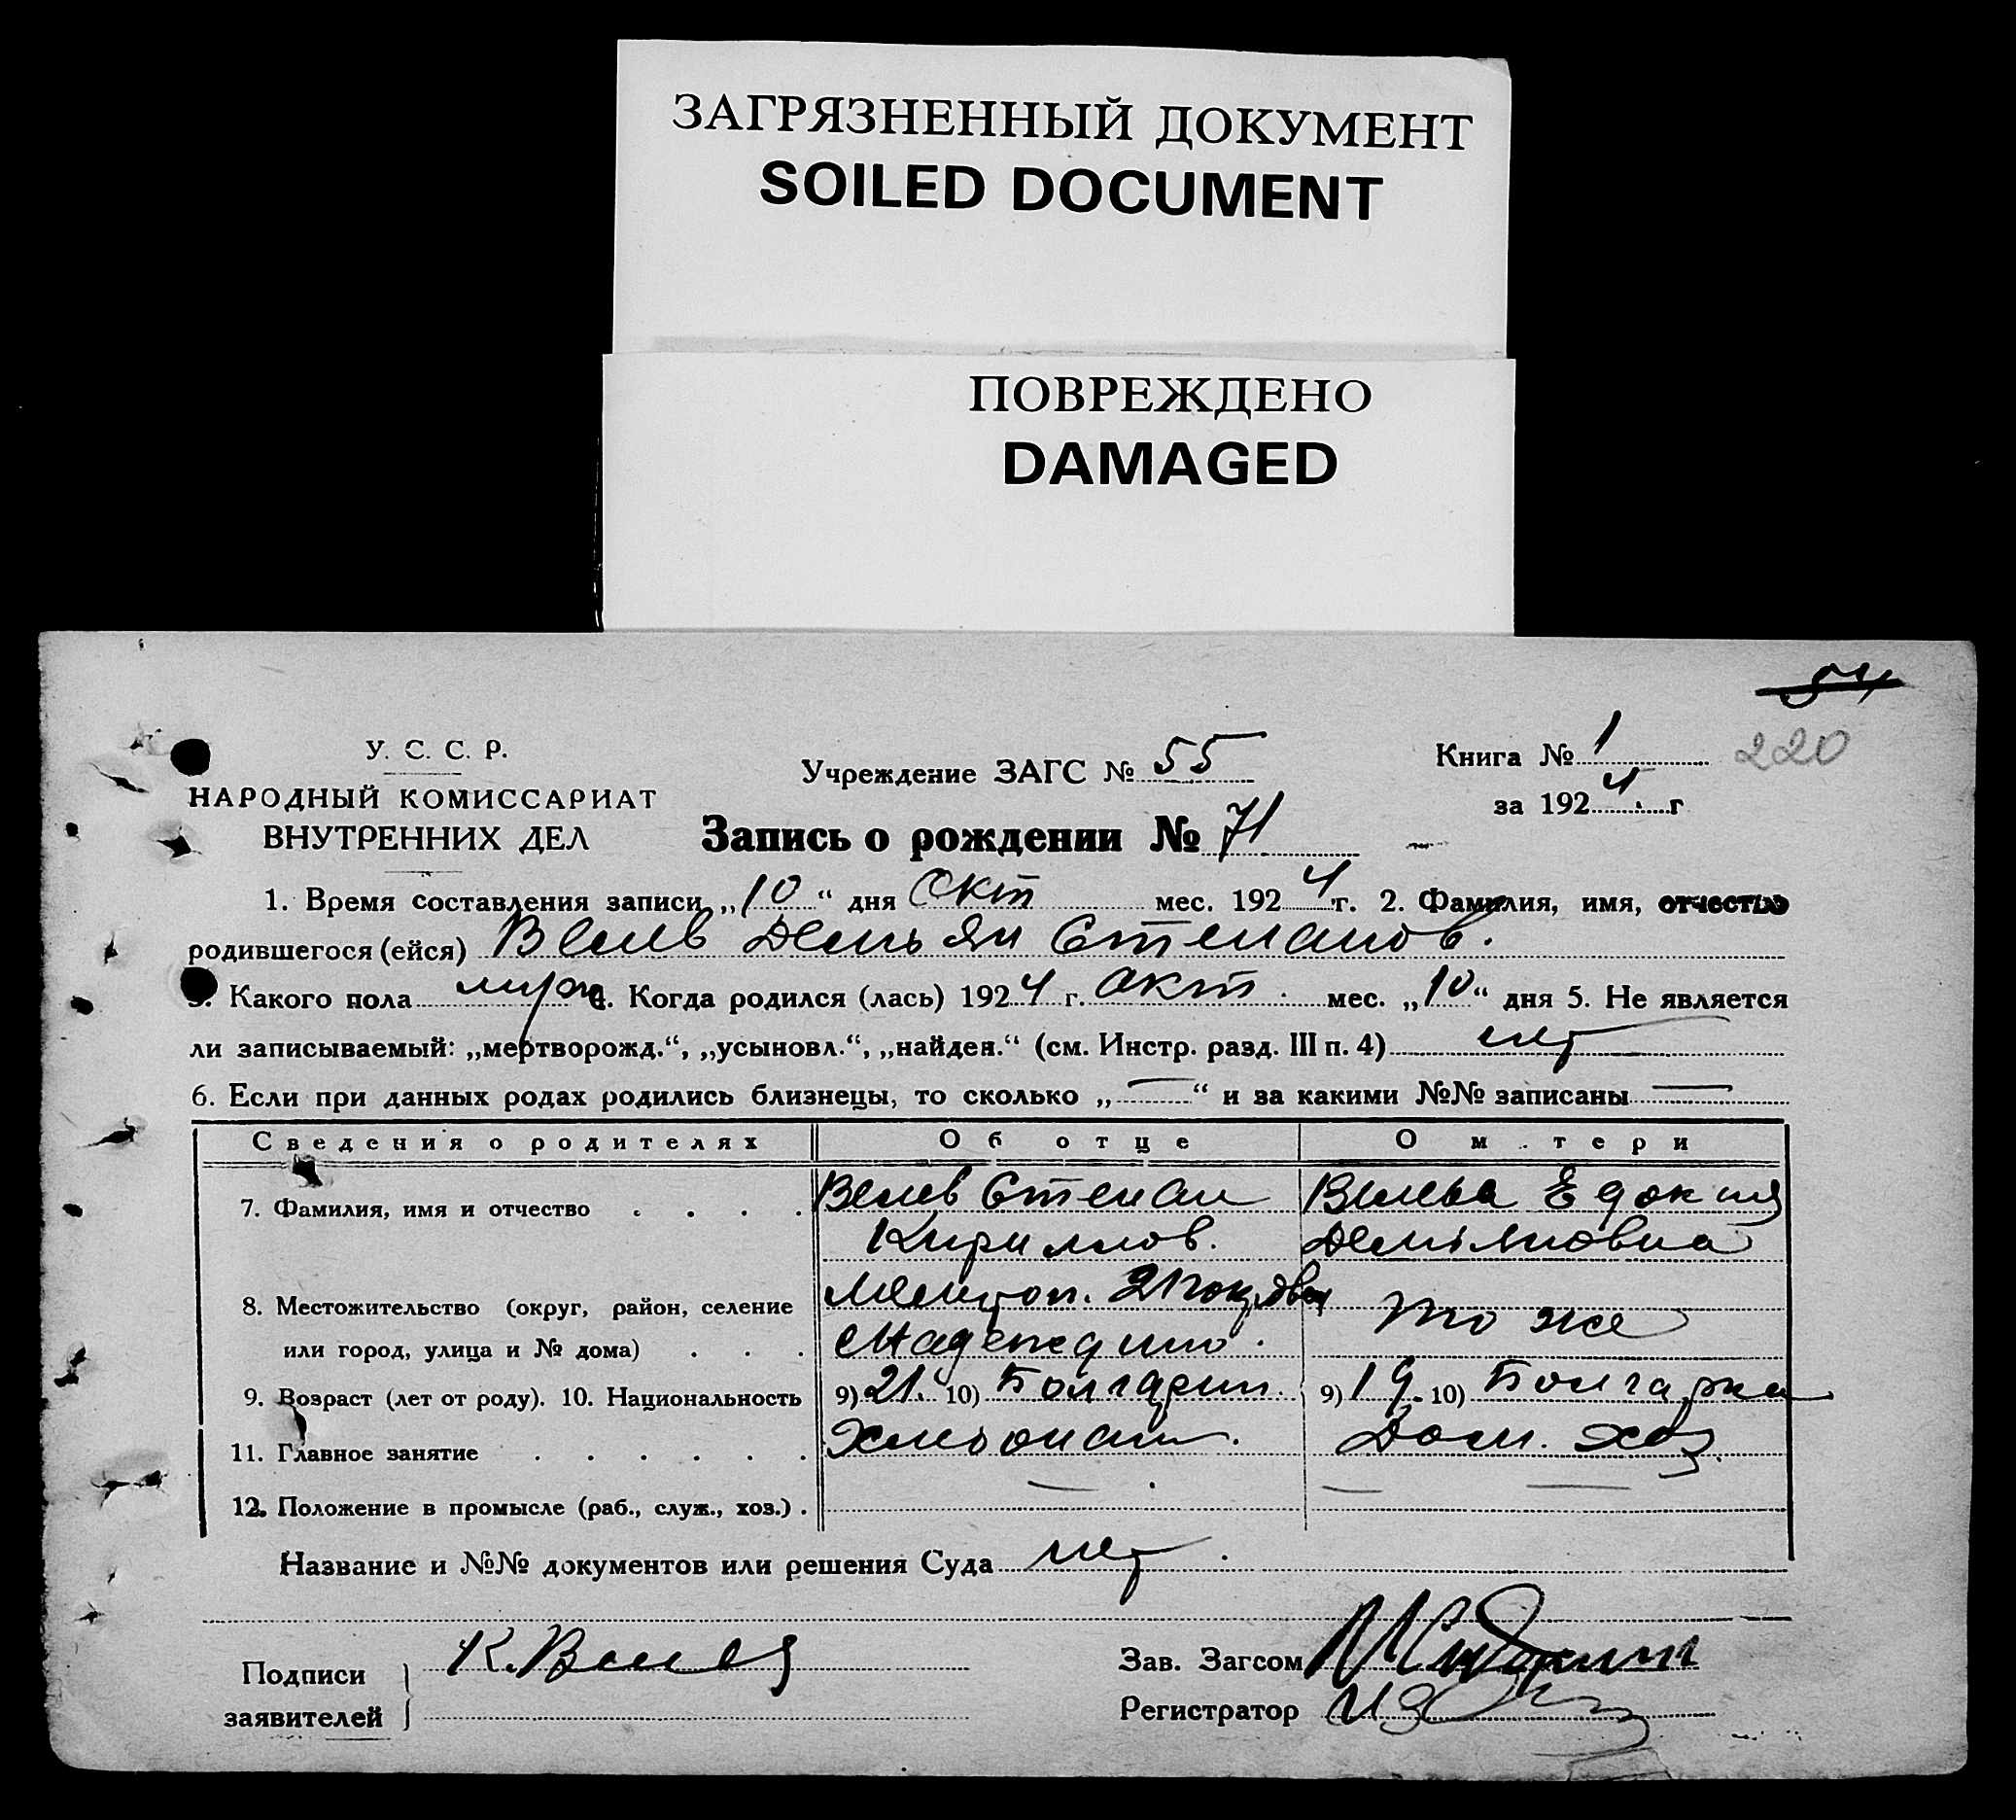 ЗАГРЯЗНЕННЫЙ ДОКУМЕНТ
SOILED DOCUMENT
ПОВРЕЖДЕНО
DAMAGED
54
У. С. С. Р.
Учреждение ЗАГС № 55
Книга № 1
220
НАРОДНЫЙ КОМИССАРИАТ
за 1924 г
ВНУТРЕННИХ ДЕЛ
Запись о рождении № 71
1. Время составления записи „10“ дня Окт мес. 1924 г. 2. Фамилия, имя, отчество
родившегося (ейся) Велев Демьян Степанов.
3. Какого пола муж 4. Когда родился (лась) 1924 г. окт. мес. „10“ дня 5. Не является
ли записываемый: „мертворожд.“, „усыновл.“, „найден.“ (см. Инстр. разд. III п. 4) нет
6. Если при данных родах родились близнецы, то сколько „—“ и за какими №№ записаны —
Сведения о родителях Об отце О м.тери
7. Фамилия, имя и отчество . . . . Велев Степан Велева Едокия
Кирилов. Демьяновна
8. Местожительство (округ, район, селение Мелитоп.
или город, улица и № дома) . . . с Надеждино. то же
9. Возраст (лет от роду). 10. Национальность 9) 21. 10) Болгарин. 9) 19. 10) Болгарка
11. Главное занятие . . . . . . Хлебопаш. Дом. хоз.
12. Положение в промысле (раб., служ., хоз.) . — — —
Название и №№ документов или решения Суда нет.
Подписи К. Велев Зав. Загсом
заявителей Регистратор